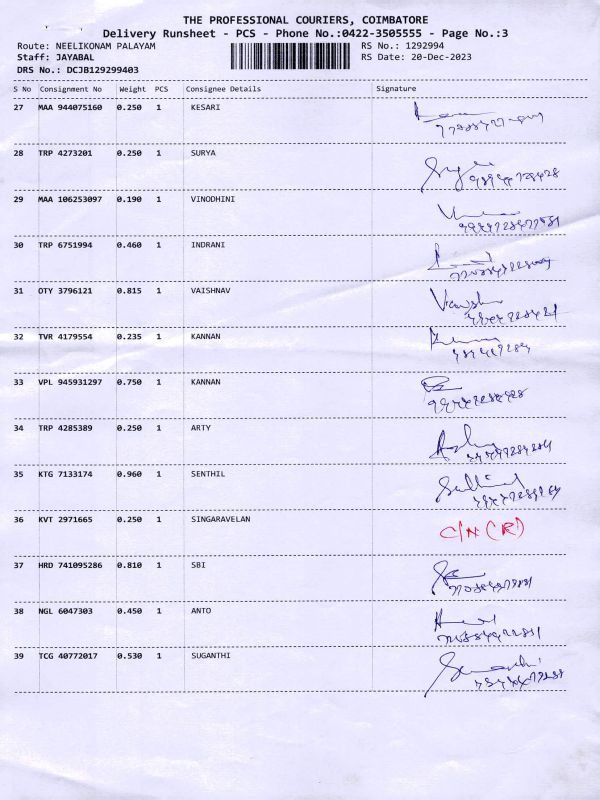 THE PROFESSIONAL COURIERS, COIMBATORE
Delivery Runsheet - PCS - Phone No.:0422-3505555 - Page No.:3
Route: NEELIKONAM PALAYAM RS No.: 1292994
Staff: JAYABAL RS Date: 20-Dec-2023
DRS No.: DCJB129299403
S No Consignment No Weight PCS Consignee Details Signature
27 MAA 944075160 0.250 1 KESARI
28 TRP 4273201 0.250 1 SURYA
29 MAA 106253097 0.190 1 VINODHINI
30 TRP 6751994 0.460 1 INDRANI
31 OTY 3796121 0.815 1 VAISHNAV
32 TVR 4179554 0.235 1 KANNAN
33 VPL 945931297 0.750 1 KANNAN
34 TRP 4285389 0.250 1 ARTY
35 KTG 7133174 0.960 1 SENTHIL
36 KVT 2971665 0.250 1 SINGARAVELAN C/N (R)
37 HRD 741095286 0.810 1 SBI
38 NGL 6047303 0.450 1 ANTO
39 TCG 40772017 0.530 1 SUGANTHI